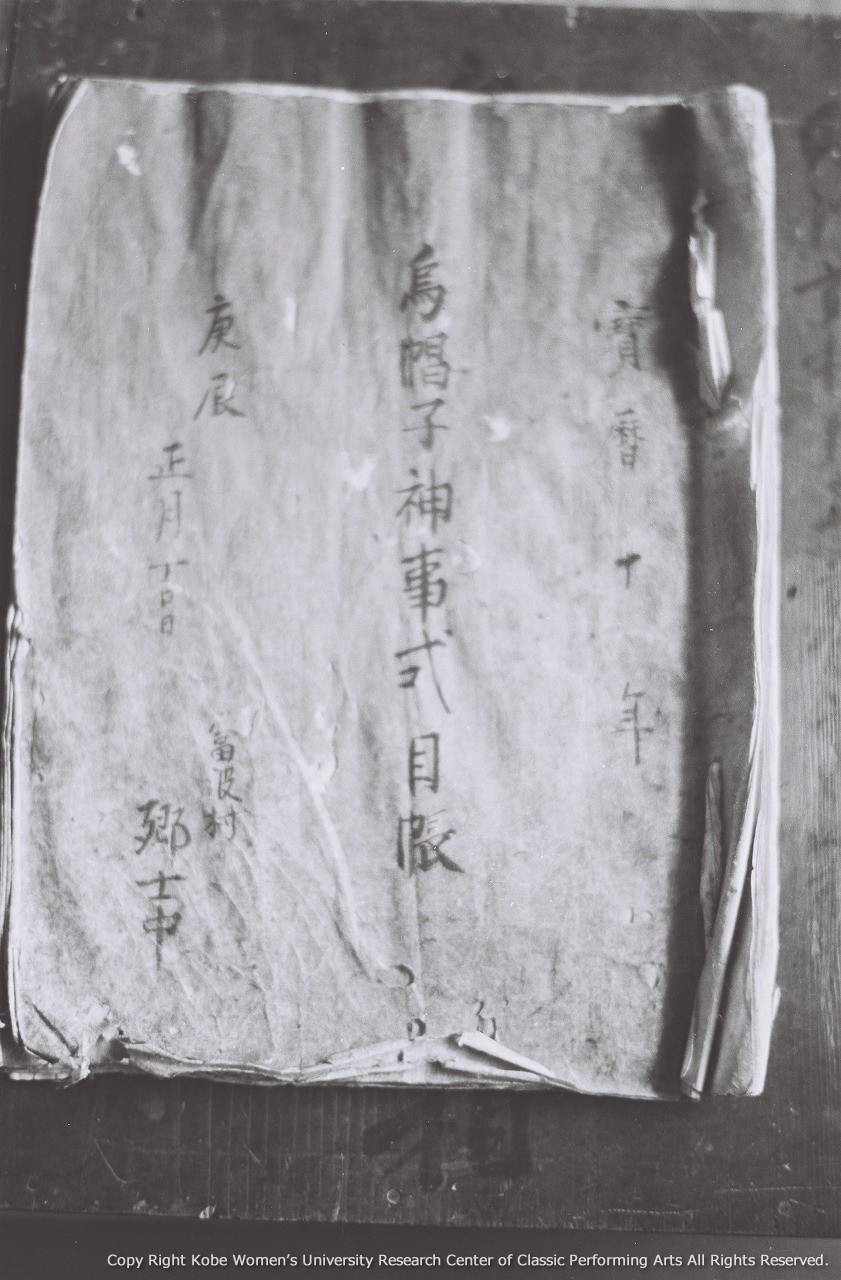 寳暦十年
烏帽子神事式目帳
庚辰
正月十一日
富波村
郷士中
Copy Right Kobe Women's University Research Center of Classic Performing Arts All Rights Reserved.